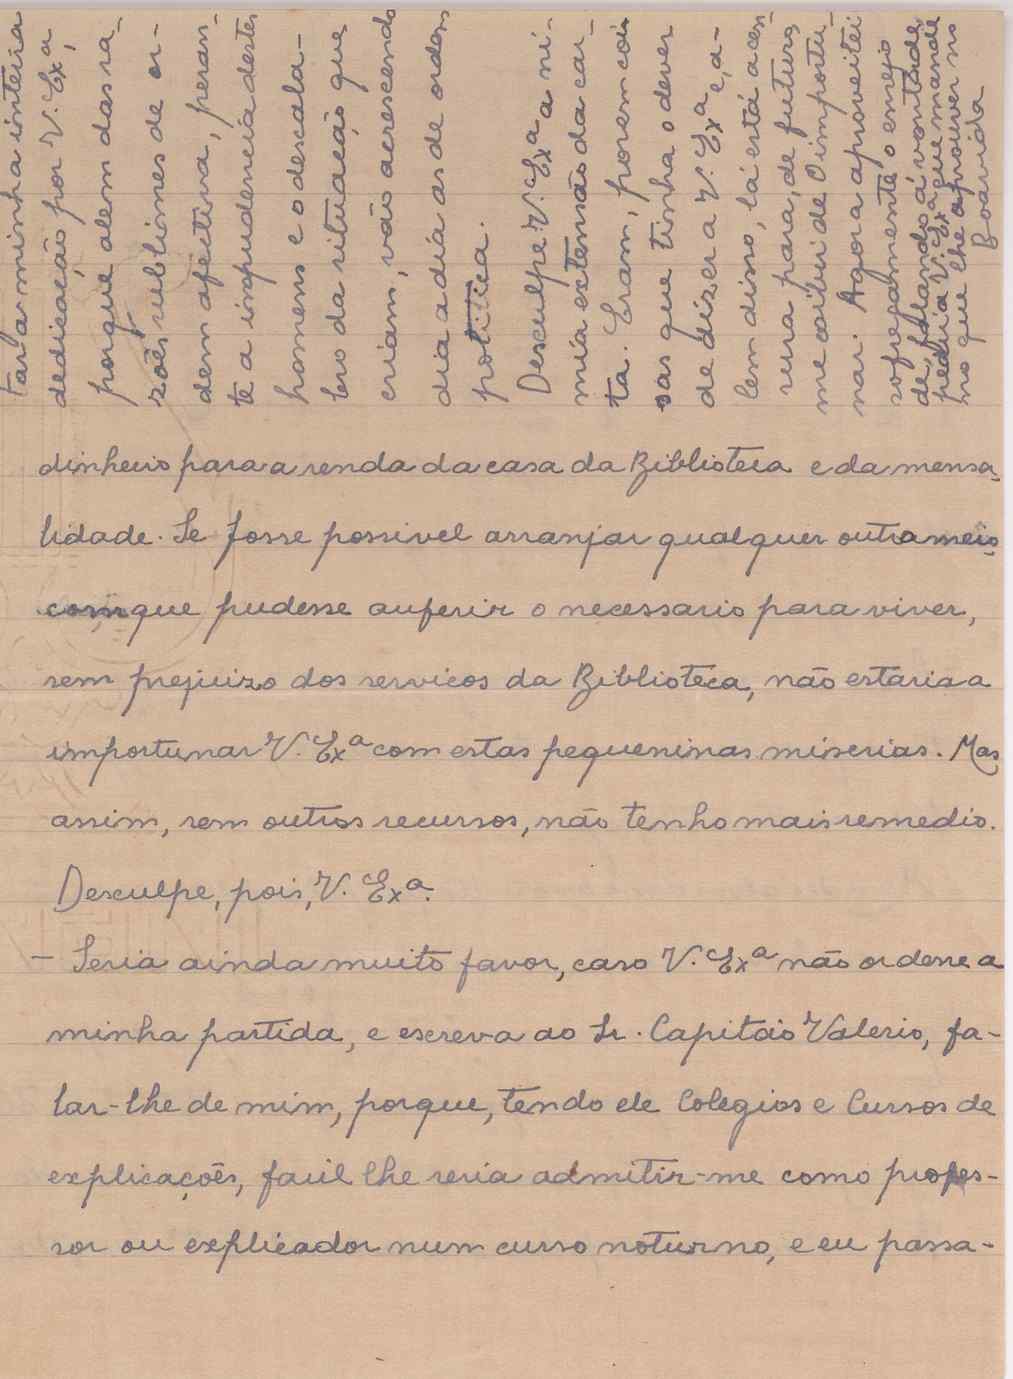 dinheiro para a renda da casa da Biblioteca e da mensa-
lidade. Se fosse possivel arranjar qualquer outro meio
com que pudesse auferir o necessario para viver,
sem prejuizo dos servicos da Biblioteca, não estaria a
importunar V. Exª com estas pequeninas miserias. Mas
assim, sem outros recursos, não tenho mais remedio.
Desculpe, pois, V. Exª.
- Seria ainda muito favor, caso V. Exª não ordene a
minha partida, e escreva ao Sr. Capitão Valerio, fa-
lar-lhe de mim, porque, tendo ele Colegios e Cursos de
explicações, facil lhe seria admitir-me como profes-
sor ou explicador num curso noturno, e eu passa-
tar a minha inteira
dedicação por V. Exª,
porque alem das ra-
zões sublimes de or-
dem afectiva, peran-
te a impudencia destes
homens e o descala-
bro da situação que
criam, vão acrescendo
dia a dia as de ordem
politica.
Desculpe V. Exª a ni-
mia extensão da car-
ta. Eram, porem coi-
sas que tinha o dever
de dizer a V. Exª e, a-
lem disso, lá está a cen-
sura para, de futuro,
me coibir de O importu-
nar. Agora aproveitei
sofregamente o ensejo
de, falando á vontade,
pedir a V. Exª que mande
no que lhe aprouver no
Boavida